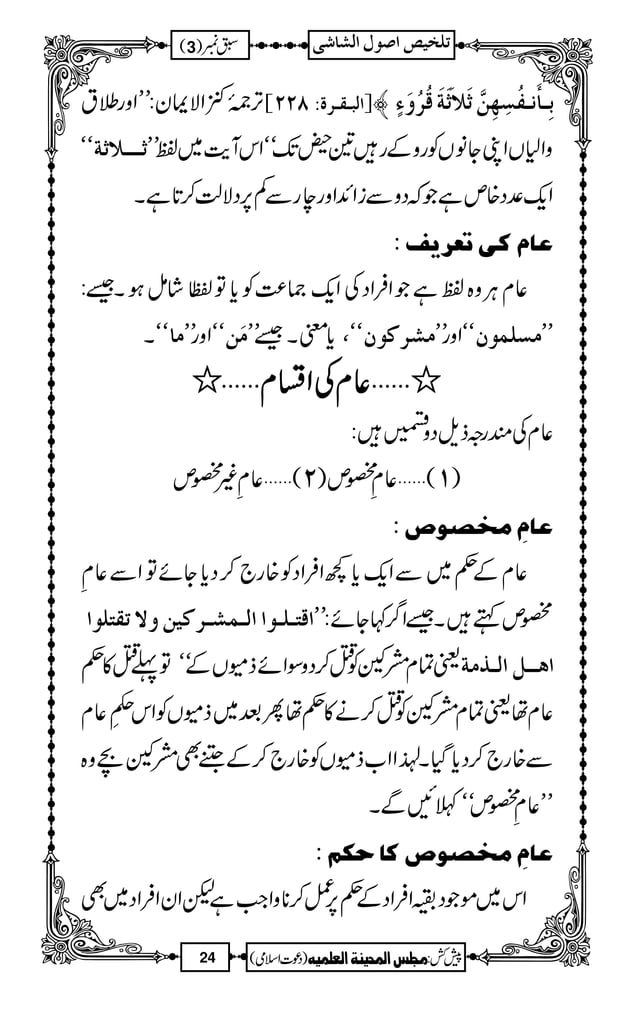 تلخیص اصول الشاشی
سبق نمبر (3)
بِأَنفُسِهِنَّ ثَلَاثَةَ قُرُوٓءٍ ﴾[البقرة: ٢٢٨] ترجمۂ کنز الایمان: ’’اور طلاق
والیاں اپنی جانوں کو روکے رہیں تین حیض تک‘‘ اس آیت میں لفظ ’’ثلاثة‘‘
ایک عدد خاص ہے جو کہ دو سے زائد اور چار سے کم پر دلالت کرتا ہے۔
عام کی تعریف :
عام ہر وہ لفظ ہے جو افراد کی ایک جماعت کو یا تو لفظا شامل ہو ۔ جیسے:
’’مسلمون‘‘ اور ’’مشرکون‘‘، یا معنی۔ جیسے ’’مَن‘‘ اور ’’ما‘‘۔
☆......عام کی اقسام......☆
عام کی مندرجہ ذیل دو قسمیں ہیں:
(۱)......عامِ مخصوص (۲)......عامِ غیر مخصوص
عامِ مخصوص :
عام کے حکم میں سے ایک یا کچھ افراد کو خارج کر دیا جائے تو اسے عامِ
مخصوص کہتے ہیں۔ جیسے اگر کہا جائے: ’’اقتلوا المشرکین ولا تقتلوا
اهل الذمة یعنی تمام مشرکین کو قتل کر دو سوائے ذمیوں کے‘‘ تو پہلے قتل کا حکم
عام تھا یعنی تمام مشرکین کو قتل کرنے کا حکم تھا پھر بعد میں ذمیوں کو اس حکمِ عام
سے خارج کر دیا گیا۔ لہذا اب ذمیوں کو خارج کر کے جتنے بھی مشرکین بچے وہ
’’عامِ مخصوص‘‘ کہلائیں گے۔
عامِ مخصوص کا حکم :
اس میں موجود بقیہ افراد کے حکم پر عمل کرنا واجب ہے لیکن ان افراد میں بھی
پیش کش: مجلس المدینة العلمیه (دعوت اسلامی)
24